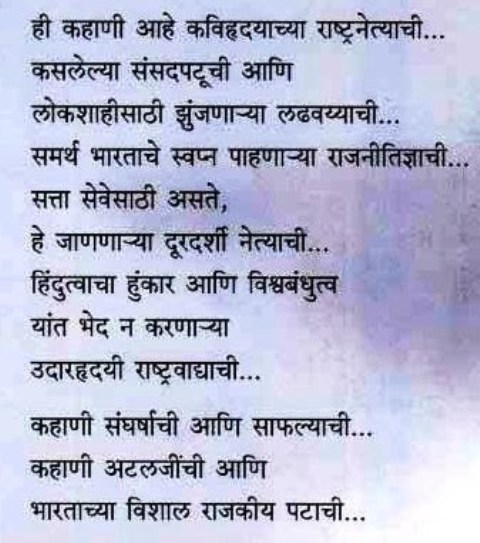 ही कहाणी आहे कविहृदयाच्या राष्ट्रनेत्याची...
कसलेल्या संसदपटूची आणि
लोकशाहीसाठी झुंजणाऱ्या लढवय्याची...
समर्थ भारताचे स्वप्न पाहणाऱ्या राजनीतिज्ञाची...
सत्ता सेवेसाठी असते,
हे जाणणाऱ्या दूरदर्शी नेत्याची...
हिंदुत्वाचा हुंकार आणि विश्वबंधुत्व
यांत भेद न करणाऱ्या
उदारहृदयी राष्ट्रवाद्याची...
कहाणी संघर्षाची आणि साफल्याची...
कहाणी अटलजींची आणि
भारताच्या विशाल राजकीय पटाची...